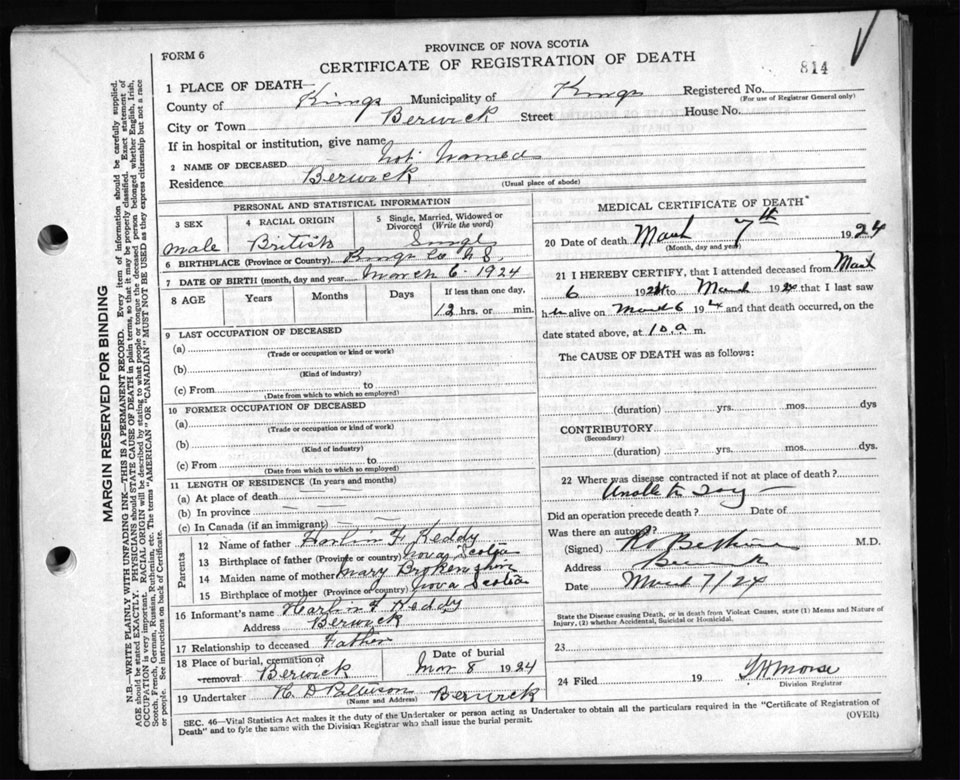 FORM 6
PROVINCE OF NOVA SCOTIA
CERTIFICATE OF REGISTRATION OF DEATH
814
1 PLACE OF DEATH—
County of Kings Municipality of Kings Registered No.
(For use of Registrar General only)
City or Town Berwick Street House No.
If in hospital or institution, give name
2 NAME OF DECEASED Not Named
Residence Berwick
(Usual place of abode)
PERSONAL AND STATISTICAL INFORMATION
3 SEX male
4 RACIAL ORIGIN British
5 Single, Married, Widowed or Divorced (Write the word) Single
6 BIRTHPLACE (Province or Country) Kings Co N S.
7 DATE OF BIRTH (month, day and year) March 6 - 1924
8 AGE Years Months Days If less than one day, 12 hrs. or min.
9 LAST OCCUPATION OF DECEASED
(a)
(Trade or occupation or kind or work)
(b)
(Kind of industry)
(c) From to
(Date from which to which so employed)
10 FORMER OCCUPATION OF DECEASED
(a)
(Trade or occupation or kind of work)
(b)
(Kind of industry)
(c) From to
(Date from which to which so employed)
11 LENGTH OF RESIDENCE (In years and months)
(a) At place of death
(b) In province
(c) In Canada (if an immigrant)
Parents
12 Name of father Harlin F Keddy
13 Birthplace of father (Province or country) Nova Scotia
14 Maiden name of mother Mary
15 Birthplace of mother (Province or country) Nova Scotia
16 Informant's name Harlin F Keddy
Address Berwick
17 Relationship to deceased Father
18 Place of burial, cremation or removal Berwick Date of burial Mar 8 1924
19 Undertaker H. D Patterson Berwick
(Name and Address)
MEDICAL CERTIFICATE OF DEATH*
20 Date of death March 7th 1924
(Month, day and year)
21 I HEREBY CERTIFY, that I attended deceased from March
6 1924 to March 1924 that I last saw
h alive on March 6 1924 and that death occurred, on
date stated above, at 10 a m.
The CAUSE OF DEATH was as follows:
(duration) yrs. mos. dys
CONTRIBUTORY
(Secondary)
(duration) yrs. mos. dys.
22 Where was disease contracted if not at place of death?
Unable to say
Did an operation precede death? Date of
Was there an autopsy?
(Signed) Bethune M.D.
Address Berwick
Date March 7/24
State the Disease causing Death, or in death from Violent Causes, state (1) Means and Nature of
Injury, (2) whether Accidental, Suicidal or Homicidal.
23
24 Filed 19 Morse
Division Registrar
SEC. 46—Vital Statistics Act makes it the duty of the Undertaker or person acting as Undertaker to obtain all the particulars required in the "Certificate of Registration of
Death" and to fyle the same with the Division Registrar who shall issue the burial permit.
(OVER)
MARGIN RESERVED FOR BINDING
N.B.—WRITE PLAINLY WITH UNFADING INK—THIS IS A PERMANENT RECORD. Every item of information should be carefully supplied.
AGE should be stated EXACTLY. PHYSICIANS should STATE CAUSE OF DEATH in plain terms, so that it may be properly classified. Exact statement of
OCCUPATION is very important. RACIAL ORIGIN will be described by stating to what people or tongue the deceased person belonged whether English, Irish,
Scotch, French, German, Russian, Ruthenian, etc. The terms "AMERICAN" OR "CANADIAN" MUST NOT BE USED as they express citizenship but not a race
or people. See instructions on back of Certificate.